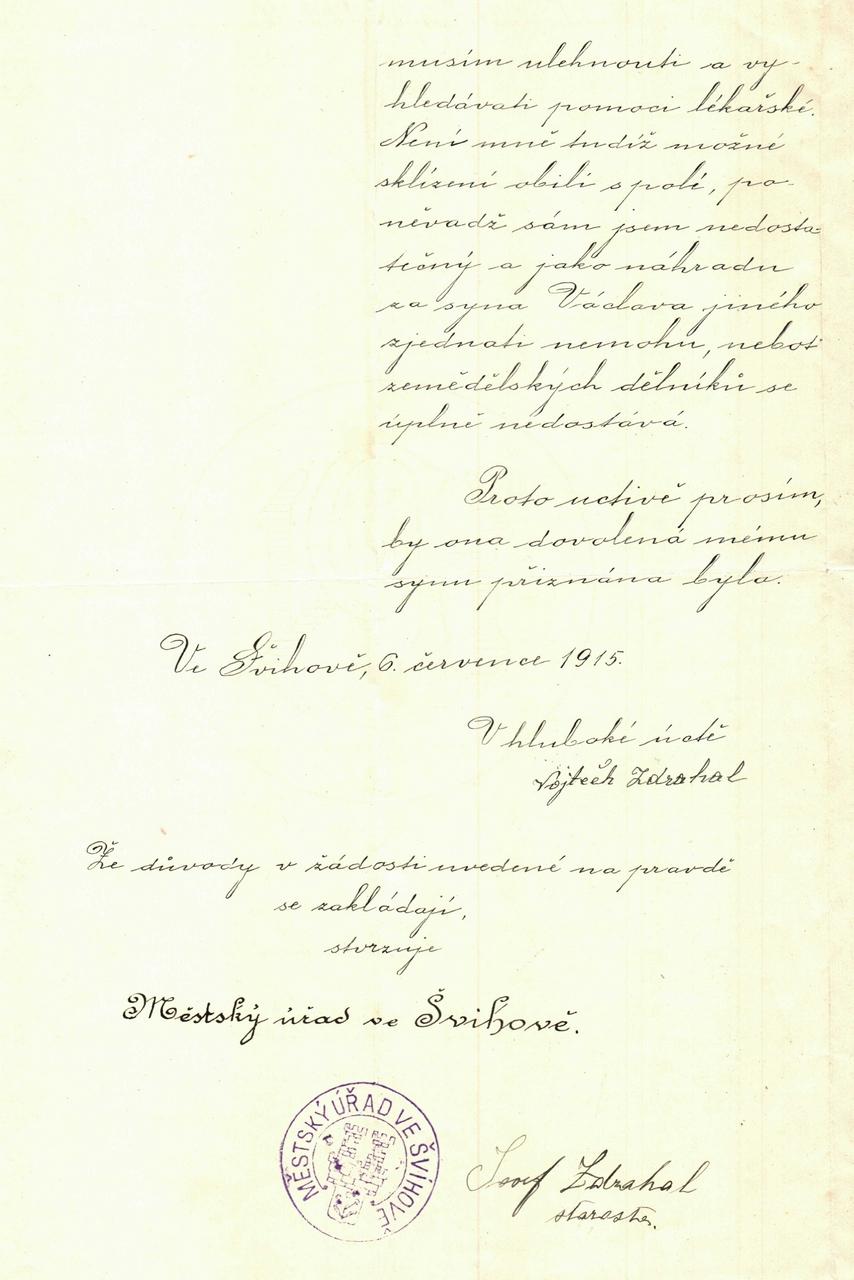 musím ulehnouti a vy-
hledávati pomoci lékařské.
Není mně tudíž možné
sklízení obilí s polí, po-
něvadž sám jsem nedosta-
tečný a jako náhradu
za syna Václava jiného
zjednati nemohu, neboť
zemědělských dělníků se
úplně nedostává.
Proto uctivě prosím,
by ona dovolená mému
synu přiznána byla.
Ve Švihově, 6. července 1915.
V hluboké úctě
Vojtěch Zdrahal
Že důvody v žádosti uvedené na pravdě
se zakládají,
stvrzuje
Městský úřad ve Švihově.
MĚSTSKÝ ÚŘAD VE ŠVIHOVĚ
Josef Zdrahal
starosta.